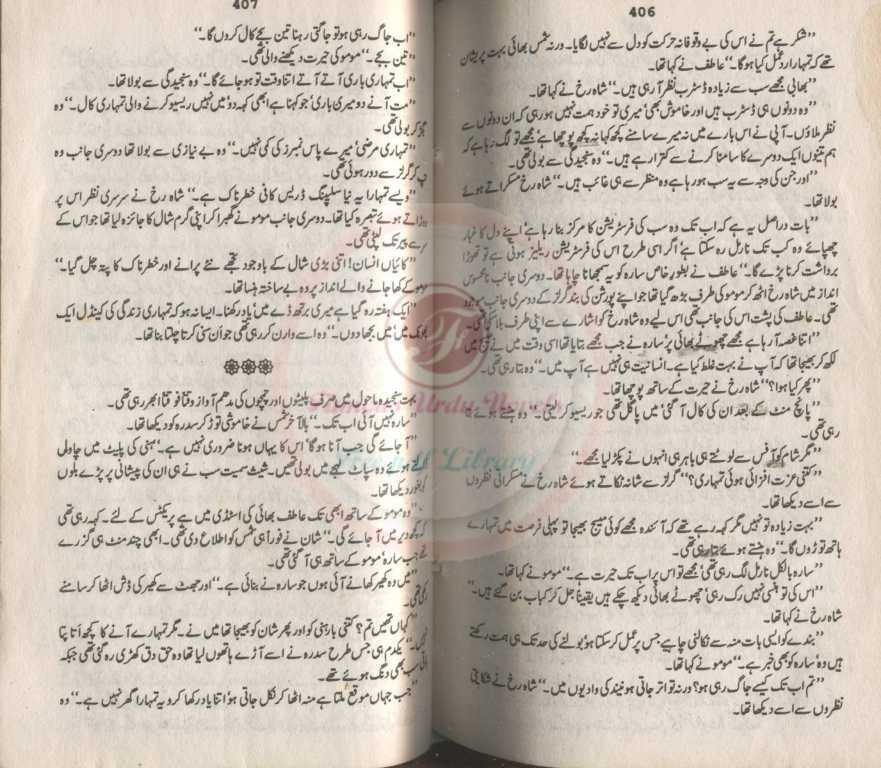 406
”شکر ہے تم نے اس کی بے وقوفانہ حرکت کو دل سے نہیں لگایا۔ ورنہ شمس بھائی بہت پریشان
تھے کہ تمہارا ردعمل کیا ہوگا۔“ عاطف نے کہا تھا۔
”بھابی مجھے سب سے زیادہ ڈسٹرب نظر آ رہی ہیں۔“ شاہ رخ نے کہا تھا۔
”وہ دونوں ہی ڈسٹرب ہیں اور خاموش بھی‘ میری تو خود ہمت نہیں ہو رہی کہ ان دونوں سے
نظر ملاؤں۔ آپی نے اس بارے میں نہ میرے سامنے کچھ کہا نہ کچھ پوچھا ہے‘ مجھے تو لگ رہا ہے کہ
ہم تینوں ایک دوسرے کا سامنا کرنے سے کترا رہے ہیں۔“ وہ سنجیدگی سے بولی تھی۔
”اور جن کی وجہ سے یہ سب ہو رہا ہے وہ منظر سے ہی غائب ہیں۔“ شاہ رخ مسکراتے ہوئے
بولا تھا۔
”بات دراصل یہ ہے کہ اب تک وہ سب کی فرسٹریشن کا مرکز بنا رہا ہے‘ اپنے دل کا غبار
چھپائے وہ کب تک نارمل رہ سکتا ہے‘ اگر اسی طرح اس کی فرسٹریشن ریلیز ہوتی ہے تو تھوڑا
برداشت کرنا پڑے گا۔“ عاطف نے بطور خاص سارہ کو سمجھانا چاہا تھا۔ دوسری جانب نامحسوس
انداز میں شاہ رخ اٹھ کر مومو کی طرف بڑھ گیا تھا جو اپنے پورشن کی بند گرلز کے دوسری جانب موجود
تھی۔ عاطف کی پشت اس کی جانب تھی اس لیے وہ شاہ رخ کو اشارے سے اپنی طرف بلا گئی تھی۔
”اتنا غصہ آ رہا ہے مجھے چھوٹے بھائی پر‘ سارہ نے جب مجھے بتایا تھا اسی وقت میں نے میسج میں
لکھ کر بھیجا تھا کہ آپ نے بہت غلط کیا ہے۔ انسانیت ہی نہیں ہے آپ میں۔“ وہ بتا رہی تھی۔
”پھر کیا ہوا؟“ شاہ رخ نے حیرت کے ساتھ پوچھا تھا۔
”پانچ منٹ کے بعد ان کی کال آ گئی‘ میں پاگل تھی جو ریسیو کر لیتی۔“ وہ ہنستے ہوئے بتا
رہی تھی۔
”مگر شام کو آفس سے لوٹتے ہی باہر ہی انہوں نے پکڑ لیا مجھے۔“
”کتنی عزت افزائی ہوئی تمہاری؟“ گرلز سے شانہ ٹکاتے ہوئے شاہ رخ نے مسکراتی نظروں
سے اسے دیکھا تھا۔
”بہت زیادہ تو نہیں مگر کہہ رہے تھے کہ آئندہ مجھے کوئی میسج بھیجا تو پہلی فرصت میں تمہارے
ہاتھ توڑوں گا۔“ وہ ہنستے ہوئے بتا رہی تھی۔
”سارہ بالکل نارمل لگ رہی تھی‘ مجھے تو اس پر اب تک حیرت ہے۔“ مومو نے کہا تھا۔
”اس کی تو ہنسی نہیں رک رہی‘ چھوٹے بھائی دیکھ چکے ہیں یقیناً جل کر کباب بن گئے ہیں۔“
شاہ رخ نے کہا تھا۔
”بندے کو ایسی بات منہ سے نکالنی چاہیے جس پر عمل کر سکتا ہو‘ بولنے کی حد تک ہی ہمت رکھتے
ہیں وہ‘ سارہ کو بھی خبر ہے۔“ مومو نے کہا تھا۔
”تم اب تک کیسے جاگ رہی ہو؟ ورنہ تو اتر جاتی ہو نیند کی وادیوں میں۔“ شاہ رخ نے شکایتی
نظروں سے اسے دیکھا تھا۔
407
”اب جاگ رہی ہو تو جاگتی رہنا تین بجے کال کروں گا۔“
”تین بجے۔“ مومو کی حیرت دیکھنے والی تھی۔
”اب تمہاری باری آتے آتے اتنا وقت تو ہو جائے گا۔“ وہ سنجیدگی سے بولا تھا۔
”مت آنے دو میری باری‘ جو کہنا ہے ابھی کہہ دو‘ میں نہیں ریسیو کرنے والی تمہاری کال۔“ وہ
بگڑ کر بولی تھی۔
”تمہاری مرضی‘ میرے پاس نمبرز کی کمی نہیں۔“ وہ بے نیازی سے بولا تھا دوسری جانب وہ
کر گرلز سے دور ہوئی تھی۔
”ویسے تمہارا یہ نیا سلیپنگ ڈریس کافی خطرناک ہے۔“ شاہ رخ نے سرسری نظر اس پر
دوڑاتے ہوئے تبصرہ کیا تھا۔ دوسری جانب مومو نے گھبرا کر اپنی گرم شال کا جائزہ لیا تھا جو اس کے
سر سے پیر تک لپٹی تھی۔
”کائیاں انسان! اتنی بڑی شال کے باوجود تجھے نئے پرانے اور خطرناک کا پتہ چل گیا۔“
مومو کے کھا جانے والے انداز پر وہ بے ساختہ ہنسا تھا۔
”ایک ہفتہ رہ گیا ہے میری برتھ ڈے میں‘ یاد رکھنا۔ ایسا نہ ہو کہ تمہاری زندگی کی کینڈل ایک
پھونک میں‘ میں بجھا دوں۔“ وہ اسے وارن کر رہی تھی جو ان سنی کرتا چلتا بنا تھا۔
بہت سنجیدہ ماحول میں صرف پلیٹوں اور چمچوں کی مدھم آواز وقتاً فوقتاً ابھر رہی تھی۔
”سارہ نہیں آئی اب تک۔“ بالآخر شمس نے خاموشی توڑ کر سدرہ کو دیکھا تھا۔
”آ جائے گی جب آنا ہوگا‘ اس کا یہاں ہونا ضروری نہیں ہے۔“ ہنی کی پلیٹ میں چاول
ڈالتے ہوئے وہ سپاٹ لہجے میں بولی تھیں۔ شیث سمیت سب نے ہی ان کی پیشانی پر پڑے بلوں
کو بغور دیکھا تھا۔
”وہ مومو کے ساتھ ابھی تک عاطف بھائی کی اسٹڈی میں ہے پریکٹس کے لئے۔ کہہ رہی تھی
کہ کچھ دیر میں آ جائے گی۔“ شان نے فوراً ہی شمس کو اطلاع دی تھی۔ ابھی چند منٹ ہی گزرے
تھے جب سارہ‘ مومو کے ساتھ ہی آ گئی تھی۔
”میں وہ کھیر کھانے آئی ہوں جو سارہ نے بنائی ہے۔“ اور جھٹ سے کھیر کی ڈش اٹھا کر سامنے
رکھی تھی۔
”کہاں تھیں تم؟ کتنی بار ہنی کو اور پھر شان کو بھیجا تھا میں نے۔ مگر تمہارے آنے کا کچھ اتا پتا
نہیں تھا۔“ یکدم ہی جس طرح سدرہ نے اسے آڑے ہاتھوں لیا تھا وہ حق دق کھڑی رہ گئی تھی جبکہ
باقی سب بھی دنگ ہوئے تھے۔
”جب جہاں موقع ملتا ہے منہ اٹھا کر نکل جاتی ہو‘ اتنا یاد رکھا کرو یہ تمہارا گھر نہیں ہے۔“ وہ
Famous Urdu Novels
Library